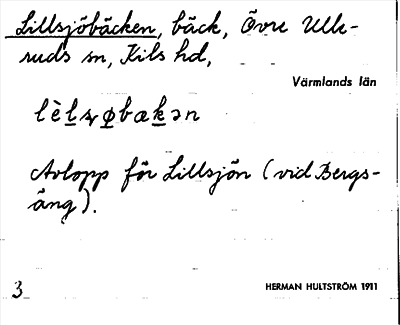 Lillsjöbäcken, bäck, Övre Ulle-
ruds sn, Kils hd,
Värmlands län
lèlsøbækən
Avlopp för Lillsjön (vid Bergs-
äng).
3 HERMAN HULTSTRÖM 1911